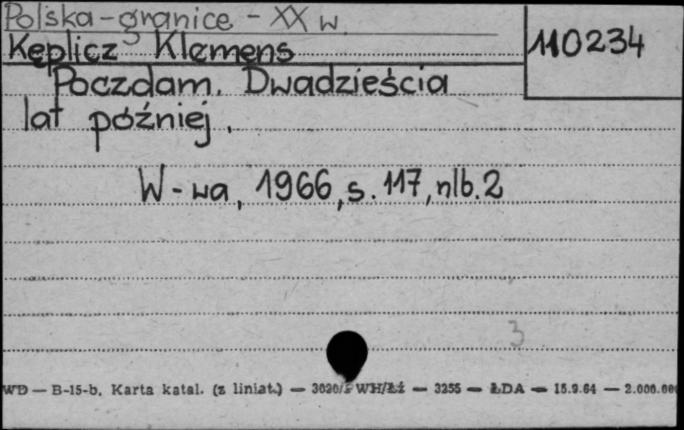 Polska-granice - XX w.
110234
Kęplicz Klemens
Poczdam. Dwadzieścia
lat później.
W-wa, 1966, s. 117, nlb. 2
3
WD — B-15-b, Karta katal. (z liniat.) — 3255 — ŁDA — 15.9.64 —